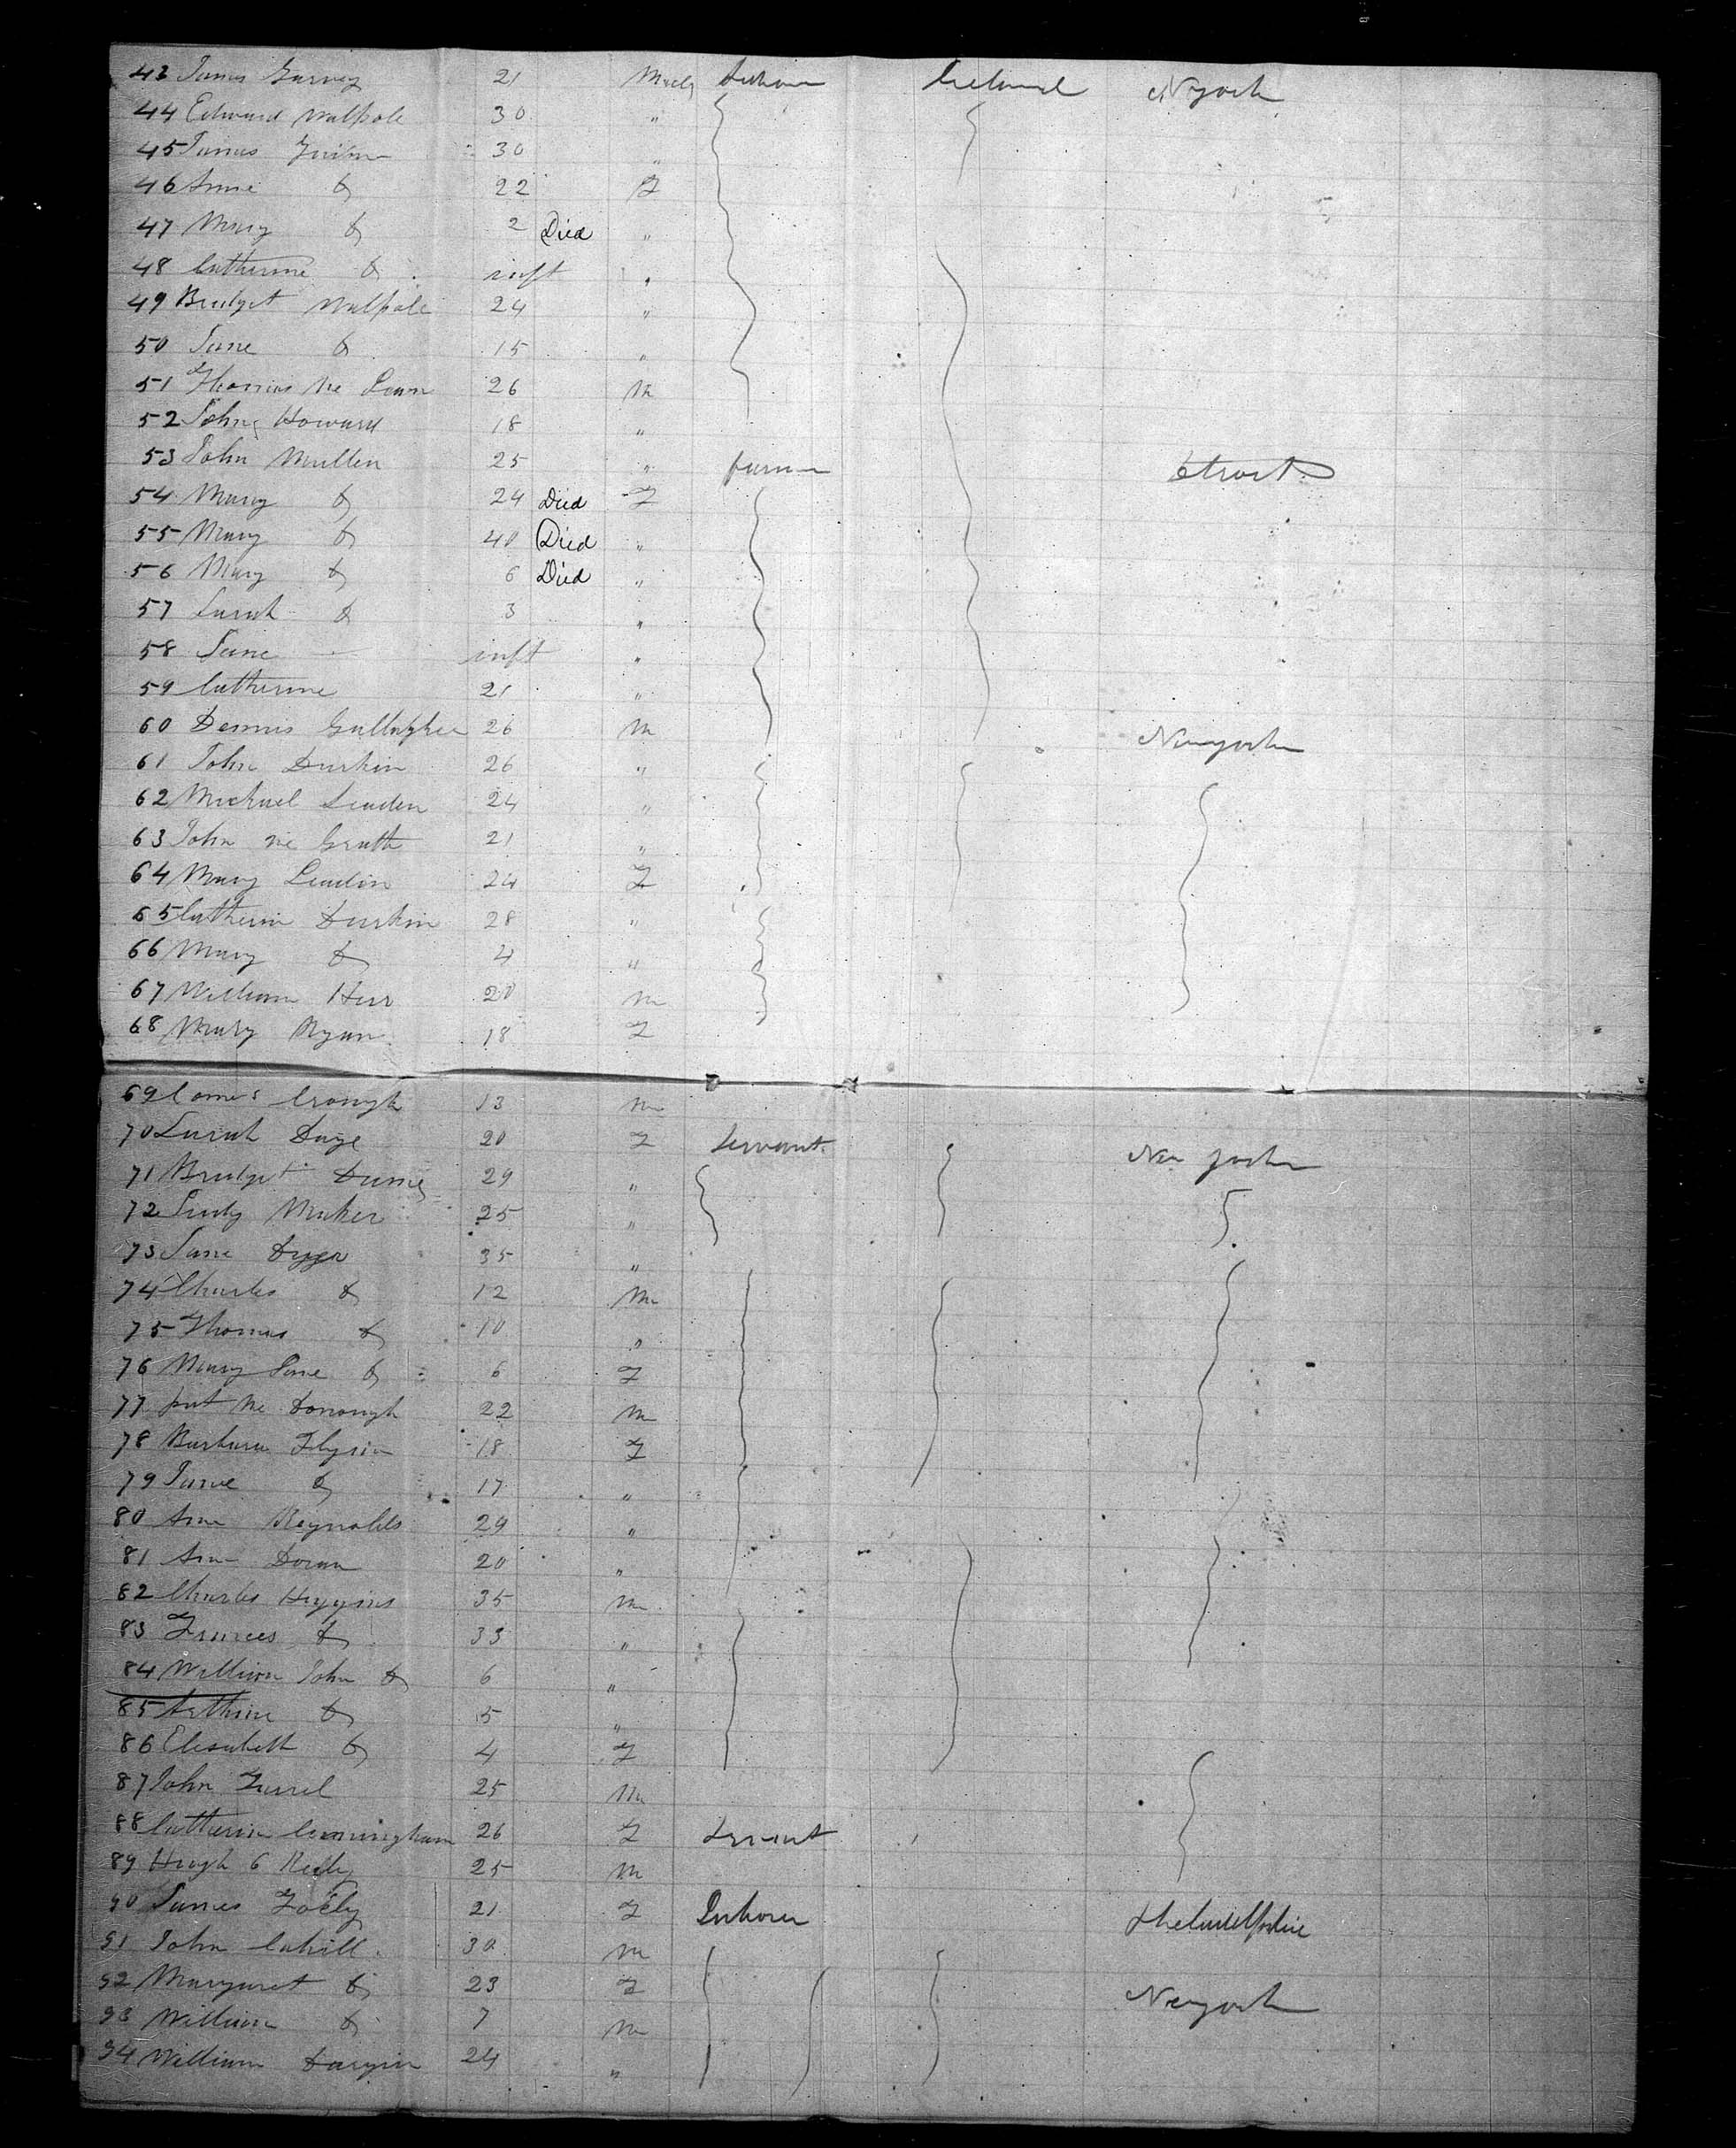 43 James Garvey 21 Male Labourer Ireland N york
44 Edward Walpole 30 "
45 James 30 "
46 Anne Do 22 F
47 Mary Do 2 Died "
48 Catherine Do inft "
49 Bridget Walpole 24 "
50 Jane Do 15 "
51 Thomas Mc 26 M
52 John Howard 18 "
53 John Mullen 25 " farmer
54 Mary Do 24 Died F
55 Mary Do 40 Died "
56 Mary Do 6 Died "
57 Sarah Do 3 "
58 Jane inft "
59 Catherine 21 "
60 Dennis Gallagher 26 M Newyork
61 John Durkin 26 "
62 Michael Leaden 24 "
63 John Mc Grath 21 "
64 Mary Leaden 24 F
65 Catherin Durkin 28 "
66 Mary Do 4 "
67 William 20 M
68 Mary Ryan 18 F
69 13 M
70 Sarah Daye 20 F Servant New york
71 Bridget 29 "
72 Judy Maher 25 "
73 Jane Dyer 35 "
74 Charles Do 12 M
75 Thomas Do 10 "
76 Mary Jane Do 6 F
77 pat Mc Donough 22 M
78 Barbara 18 F
79 Do 17 "
80 Ann Reynolds 29 "
81 Ann Doran 20 "
82 Charles Higgins 35 M
83 Frances Do 33 "
84 William John Do 6 "
85 Do 5 "
86 Elesabeth Do 4 F
87 John 25 M
88 Catherin Cunningham 26 F Servant
89 Hugh O Reilly 25 M
90 James 21 F Labourer
91 John Cahill 30 M
92 Margaret Do 23 F Newyork
93 William Do 7 M
94 William 24 "